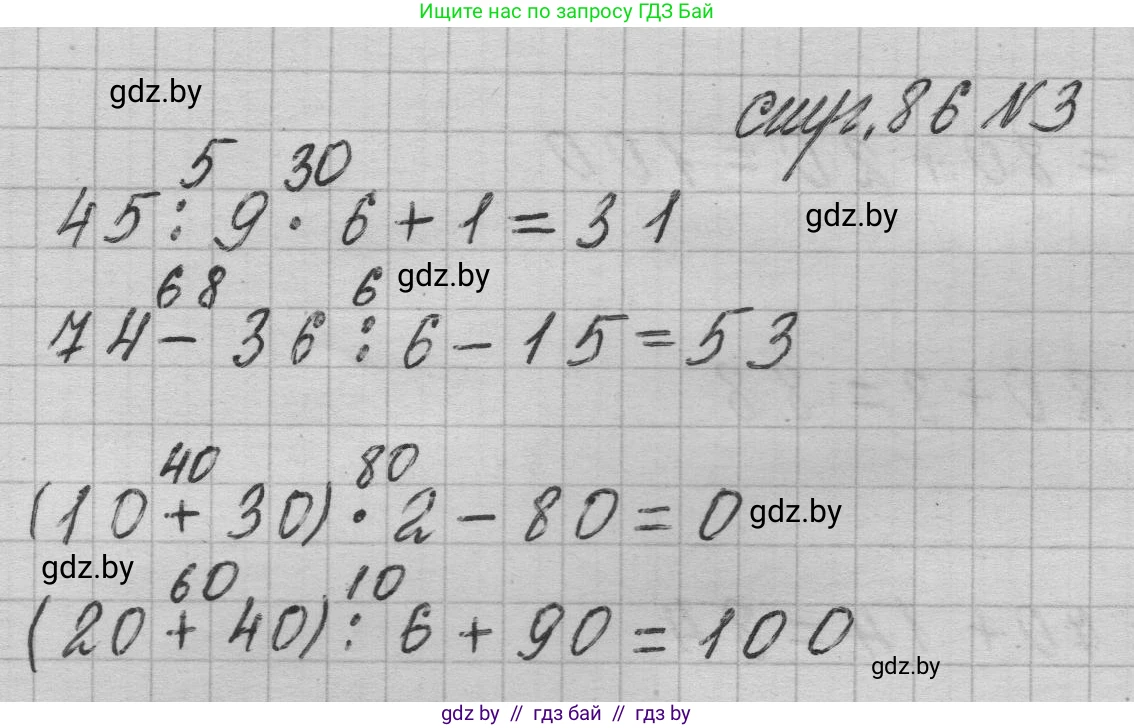 Ищите нас по запросу ГДЗ Бай
gdz.by
стр. 86 №3
5 30
45 : 9 · 6 + 1 = 31
gdz.by
68 6 gdz.by
74 - 36 : 6 - 15 = 53
40 80
(10 + 30) · 2 - 80 = 0 gdz.by
gdz.by 60 10
(20 + 40) : 6 + 90 = 100
gdz.by
gdz by // гдз бай // гдз by